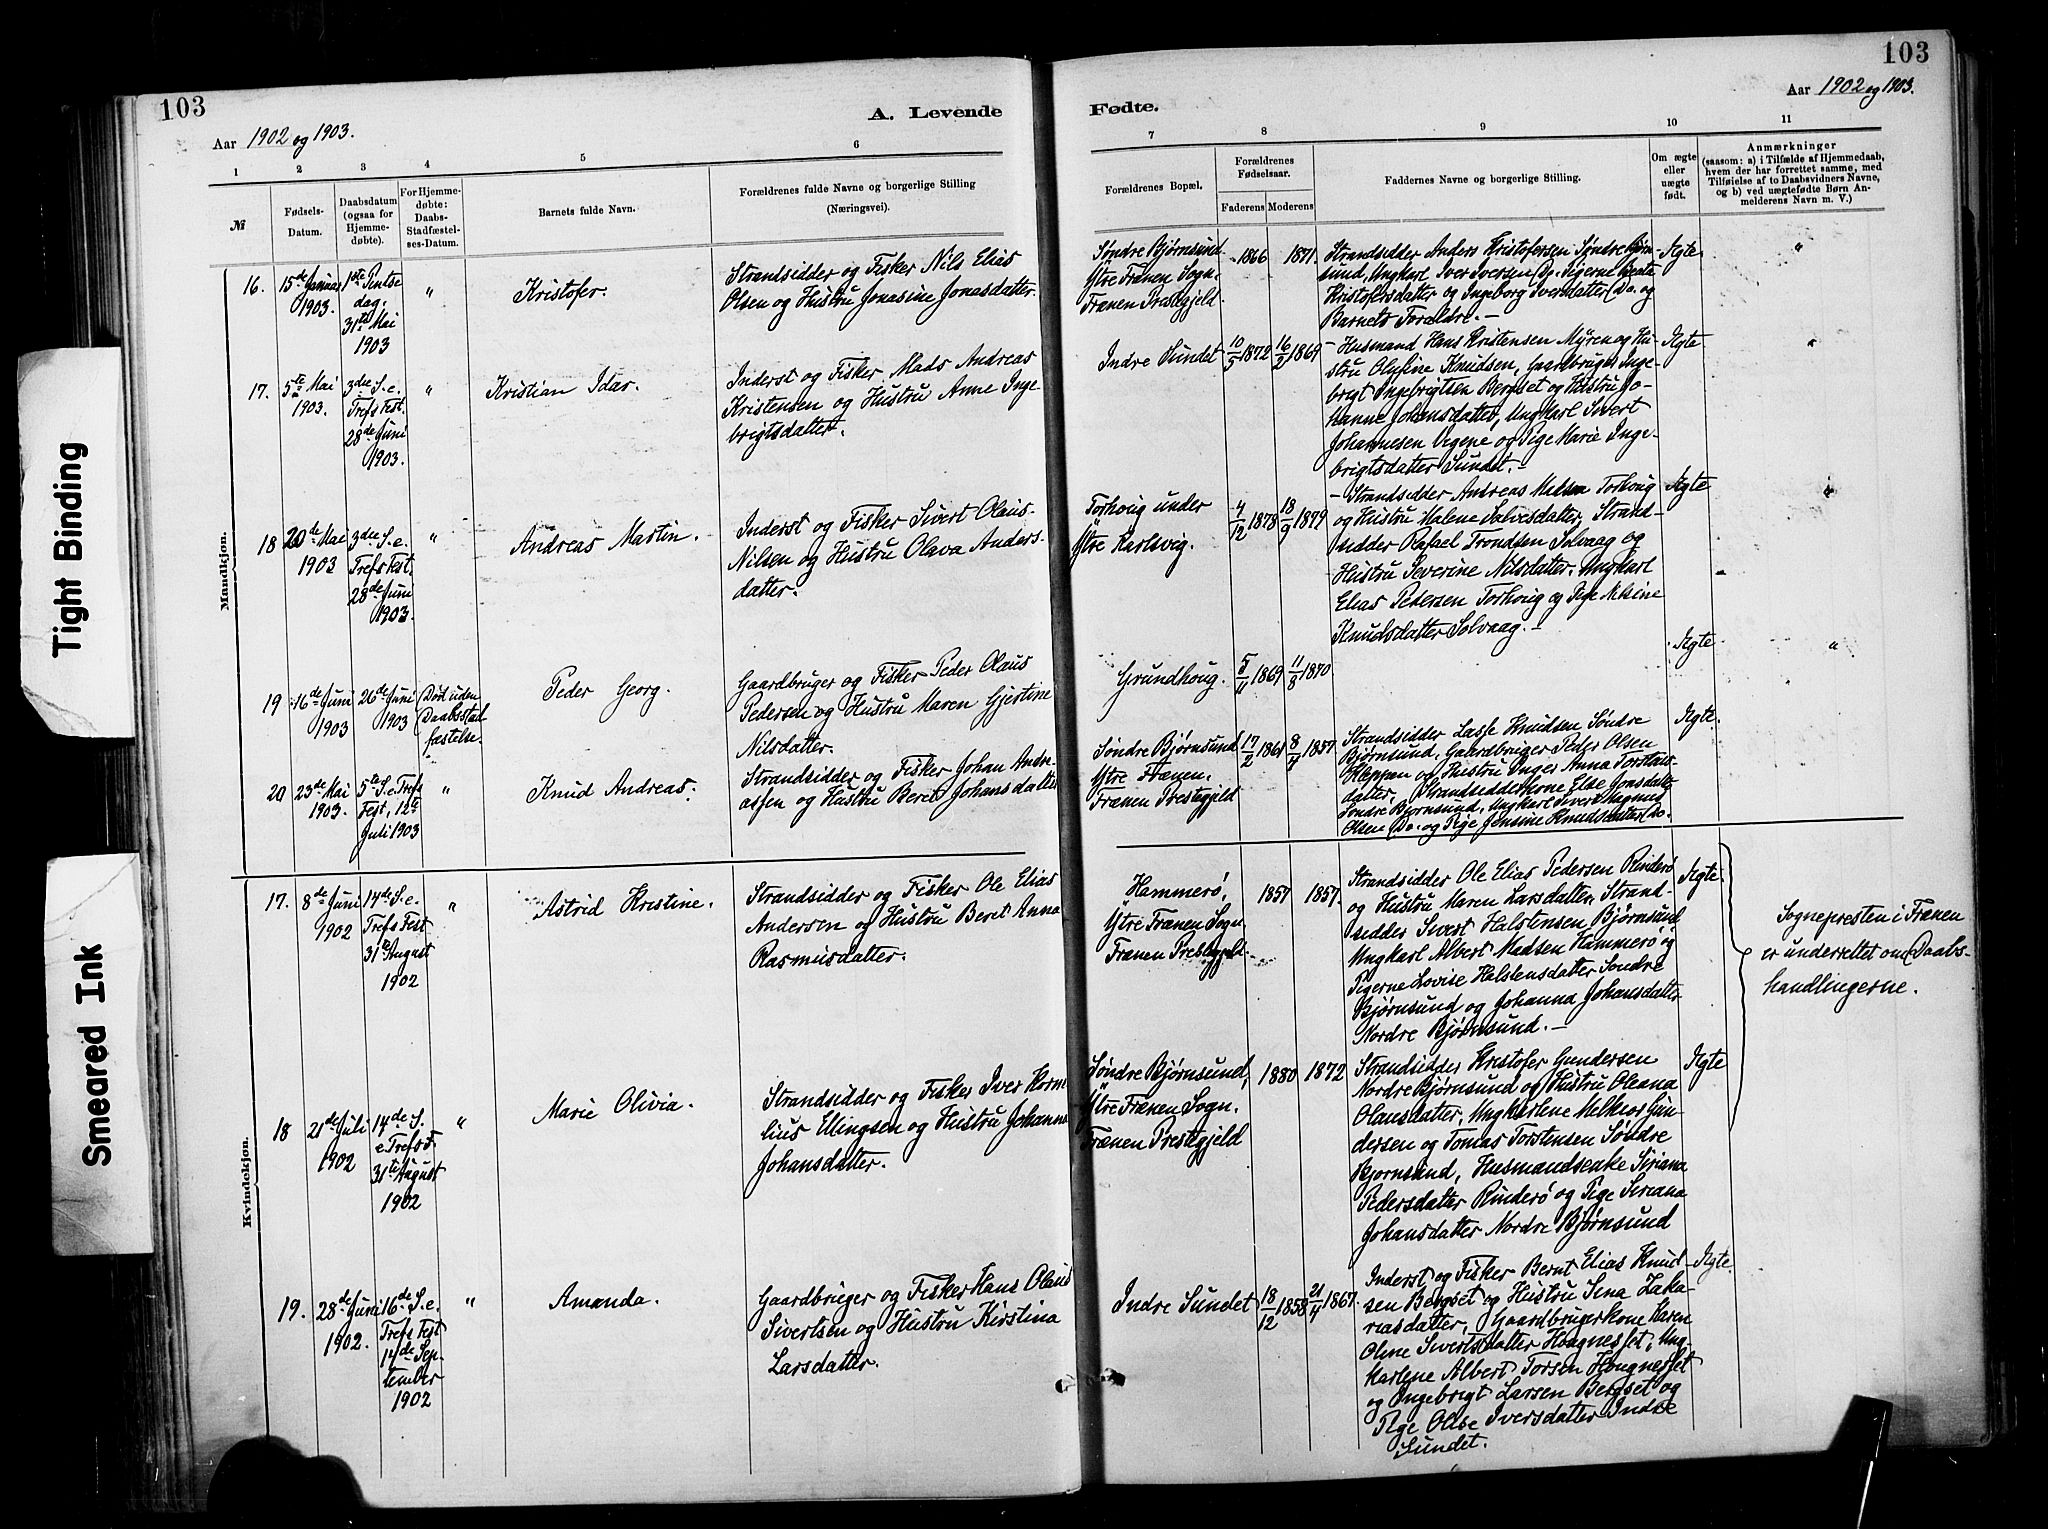 103
A. Levende
Aar 1902 og 1903.
1
2
3
4
5
6
№
Fødsels-
Datum.
Daabsdatum
(ogsaa for
Hjemme-
døbte).
For Hjemme-
døbte:
Daabs-
Stadfæstel-
ses-Datum.
Barnets fulde Navn.
Forældrenes fulde Navne og borgerlige Stilling
(Næringsvei).
Mandkjøn.
16.
15de Januar
1903.
1ste Pintse
dag.
31te Mai
1903
"
Kristofer.
Strandsidder og Fisker Nils Elias
Olsen og Hustru Jonasine Jonasdatter.
17.
5te Mai
1903.
3die S. e.
Trefs Fest.
28de Juni
1903.
"
Kristian Idar.
Inderst og Fisker Mads Andreas
Kristensen og Hustru Anne Inge-
brigtsdatter.
18
20de Mai
1903
3die S. e.
Trefs Fest.
28de Juni
1903.
"
Andreas Martin.
Inderst og Fisker Sivert Olaus-
Nilsen og Hustru Olava Anders-
datter.
19
16de Juni
1903
26de Juni
1903
Død uden
Daabsstad-
fæstelse.
Peder Georg.
Gaardbruger og Fisker Peder Olaus
Pedersen og Hustru Maren Gjertine
Nilsdatter.
20
23de Mai
1903.
5te S. e. Trefs
Fest, 12te
Juli 1903
"
Knud Andreas.
Strandsidder og Fisker Johan Andre-
assen og Hustru Beret Johansdatter
Kvindekjøn.
17.
8de Juni
1902
14de S. e.
Trefs Fest
31te August
1902
"
Astrid Kristine.
Strandsidder og Fisker Ole Elias
Andersen og Hustru Beret Anna
Rasmusdatter.
18
21de Juli
1902
14de S.
e Trefsf.
31te August
1902
"
Marie Olivia.
Strandsidder og Fisker Iver Korne-
lius Ellingsen og Hustru Johanna
Johansdatter.
19.
28de Juni
1902.
16de S. e.
Trefs Fest
14de Sep-
tember
1902
"
Amanda.
Gaardbruger og Fisker Hans Olaus
Sivertsen og Hustru Kirstina
Larsdatter.
103
Fødte.
Aar 1902 og 1903.
7
8
9
10
11
Forældrenes Bopæl.
Forældrenes
Fødselsaar.
Faderens
Moderens
Faddernes Navne og borgerlige Stilling.
Om ægte
eller
uægte
født.
Anmærkninger
(saasom: a) i Tilfælde af Hjemmedaab,
hvem der har forrettet samme, med
Tilføielse af to Daabsvidners Navne,
og b) ved uægtefødte Børn An-
melderens Navn m. V.)
Søndre Bjørnsund
Ytre Frænen Sogn,
Frænen Præstegjeld.
1866
1871.
Strandsidder Anders Kristofersen Søndre Bjørn-
sund, Ungkarl Iver Iversen Do. Pigerne Berte
Kristofersdatter og Ingeborg Iversdatter Do. og
Barnets Forældre. —
Ægte
"
Indre Sundet
10/5 1872
16/2 1869
Husmand Hans Kristensen Myren og Hu-
stru Olufine Knudsen, Gaardbruger Inge-
brigt Ingebrigtsen Bergset og Hustru Jo-
hanne Johansdatter, Ungkarl Sivert
Johannesen Vegene og Pige Marie Inge-
brigtsdatter Sundet. —
Ægte
"
Torhoug under
Ytre Karlsvig.
4/12 1878
18/9 1879
Strandsidder Andreas Nilsen Torhoug
og Hustru Malene Salvesdatter, Strand-
sidder Rafael Trondsen Solvaag og
Hustru Severine Nilsdatter. Ungkarl
Elias Pedersen Torhoug og Pige Nilsine
Knudsdatter Solvaag. —
Ægte
"
Grundhoug.
5/11 1869
11/8 1870
Ægte
"
Søndre Bjørnsund
Ytre Frænen.
Frænen Prestegjeld
17/2 1861
8/4 1857
Strandsidder Lasse Knudsen Søndre
Bjørnsund, Gaardbruger Peder Olsen
Kleppen og Hustru Inger Anna Torstens-
datter, Strandsidderkone Else Jonsdatter
Søndre Bjørnsund, Ungkarl Sivert Magnus
Olsen Do. og Pige Jensine Knudsdatter Do.
Ægte.
Hammerø,
Ytre Frænen Sogn
Frænen Prestegjeld.
1857
1857.
Strandsidder Ole Elias Pedersen Rinderø
og Hustru Maren Larsdatter. Strand-
sidder Sivert Halstensen Bjørnsund,
Ungkarl Albert Madsen Hammerø og
Pigerne Lovise Halstensdatter Søndre
Bjørnsund og Johanna Johansdatter
Nordre Bjørnsund. —
Ægte
Sognepresten i Frænen
er underrettet om Daabs-
handlingerne.
Søndre Bjørnsund,
Ytre Frænen Sogn.
Frænen Prestegjeld
1880
1872
Strandsidder Kristofer Gundersen
Nordre Bjørnsund og Hustru Oleana
Olausdatter, Ungkarlene Melkior Gun-
dersen og Tomas Torstensen Søndre
Bjørnsund, Husmandsenke Siriana
Pedersdatter Rinderø og Pige Siriana
Johansdatter Nordre Bjørnsund
Ægte
Indre Sundet
18/12 1858
21/4 1867.
Inderst og Fisker Bernt Elias Knud-
sen Bergset og Hustru Sina Zaka-
riasdatter, Gaardbrugerkone Karen
Oline Sivertsdatter Hougneset, Ung-
karlene Albert Torsen Hougneset
og Ingebrigt Larsen Bergset og
Pige Oline Iversdatter Indre
Sundet.
Ægte.
Tight Binding
Smeared Ink